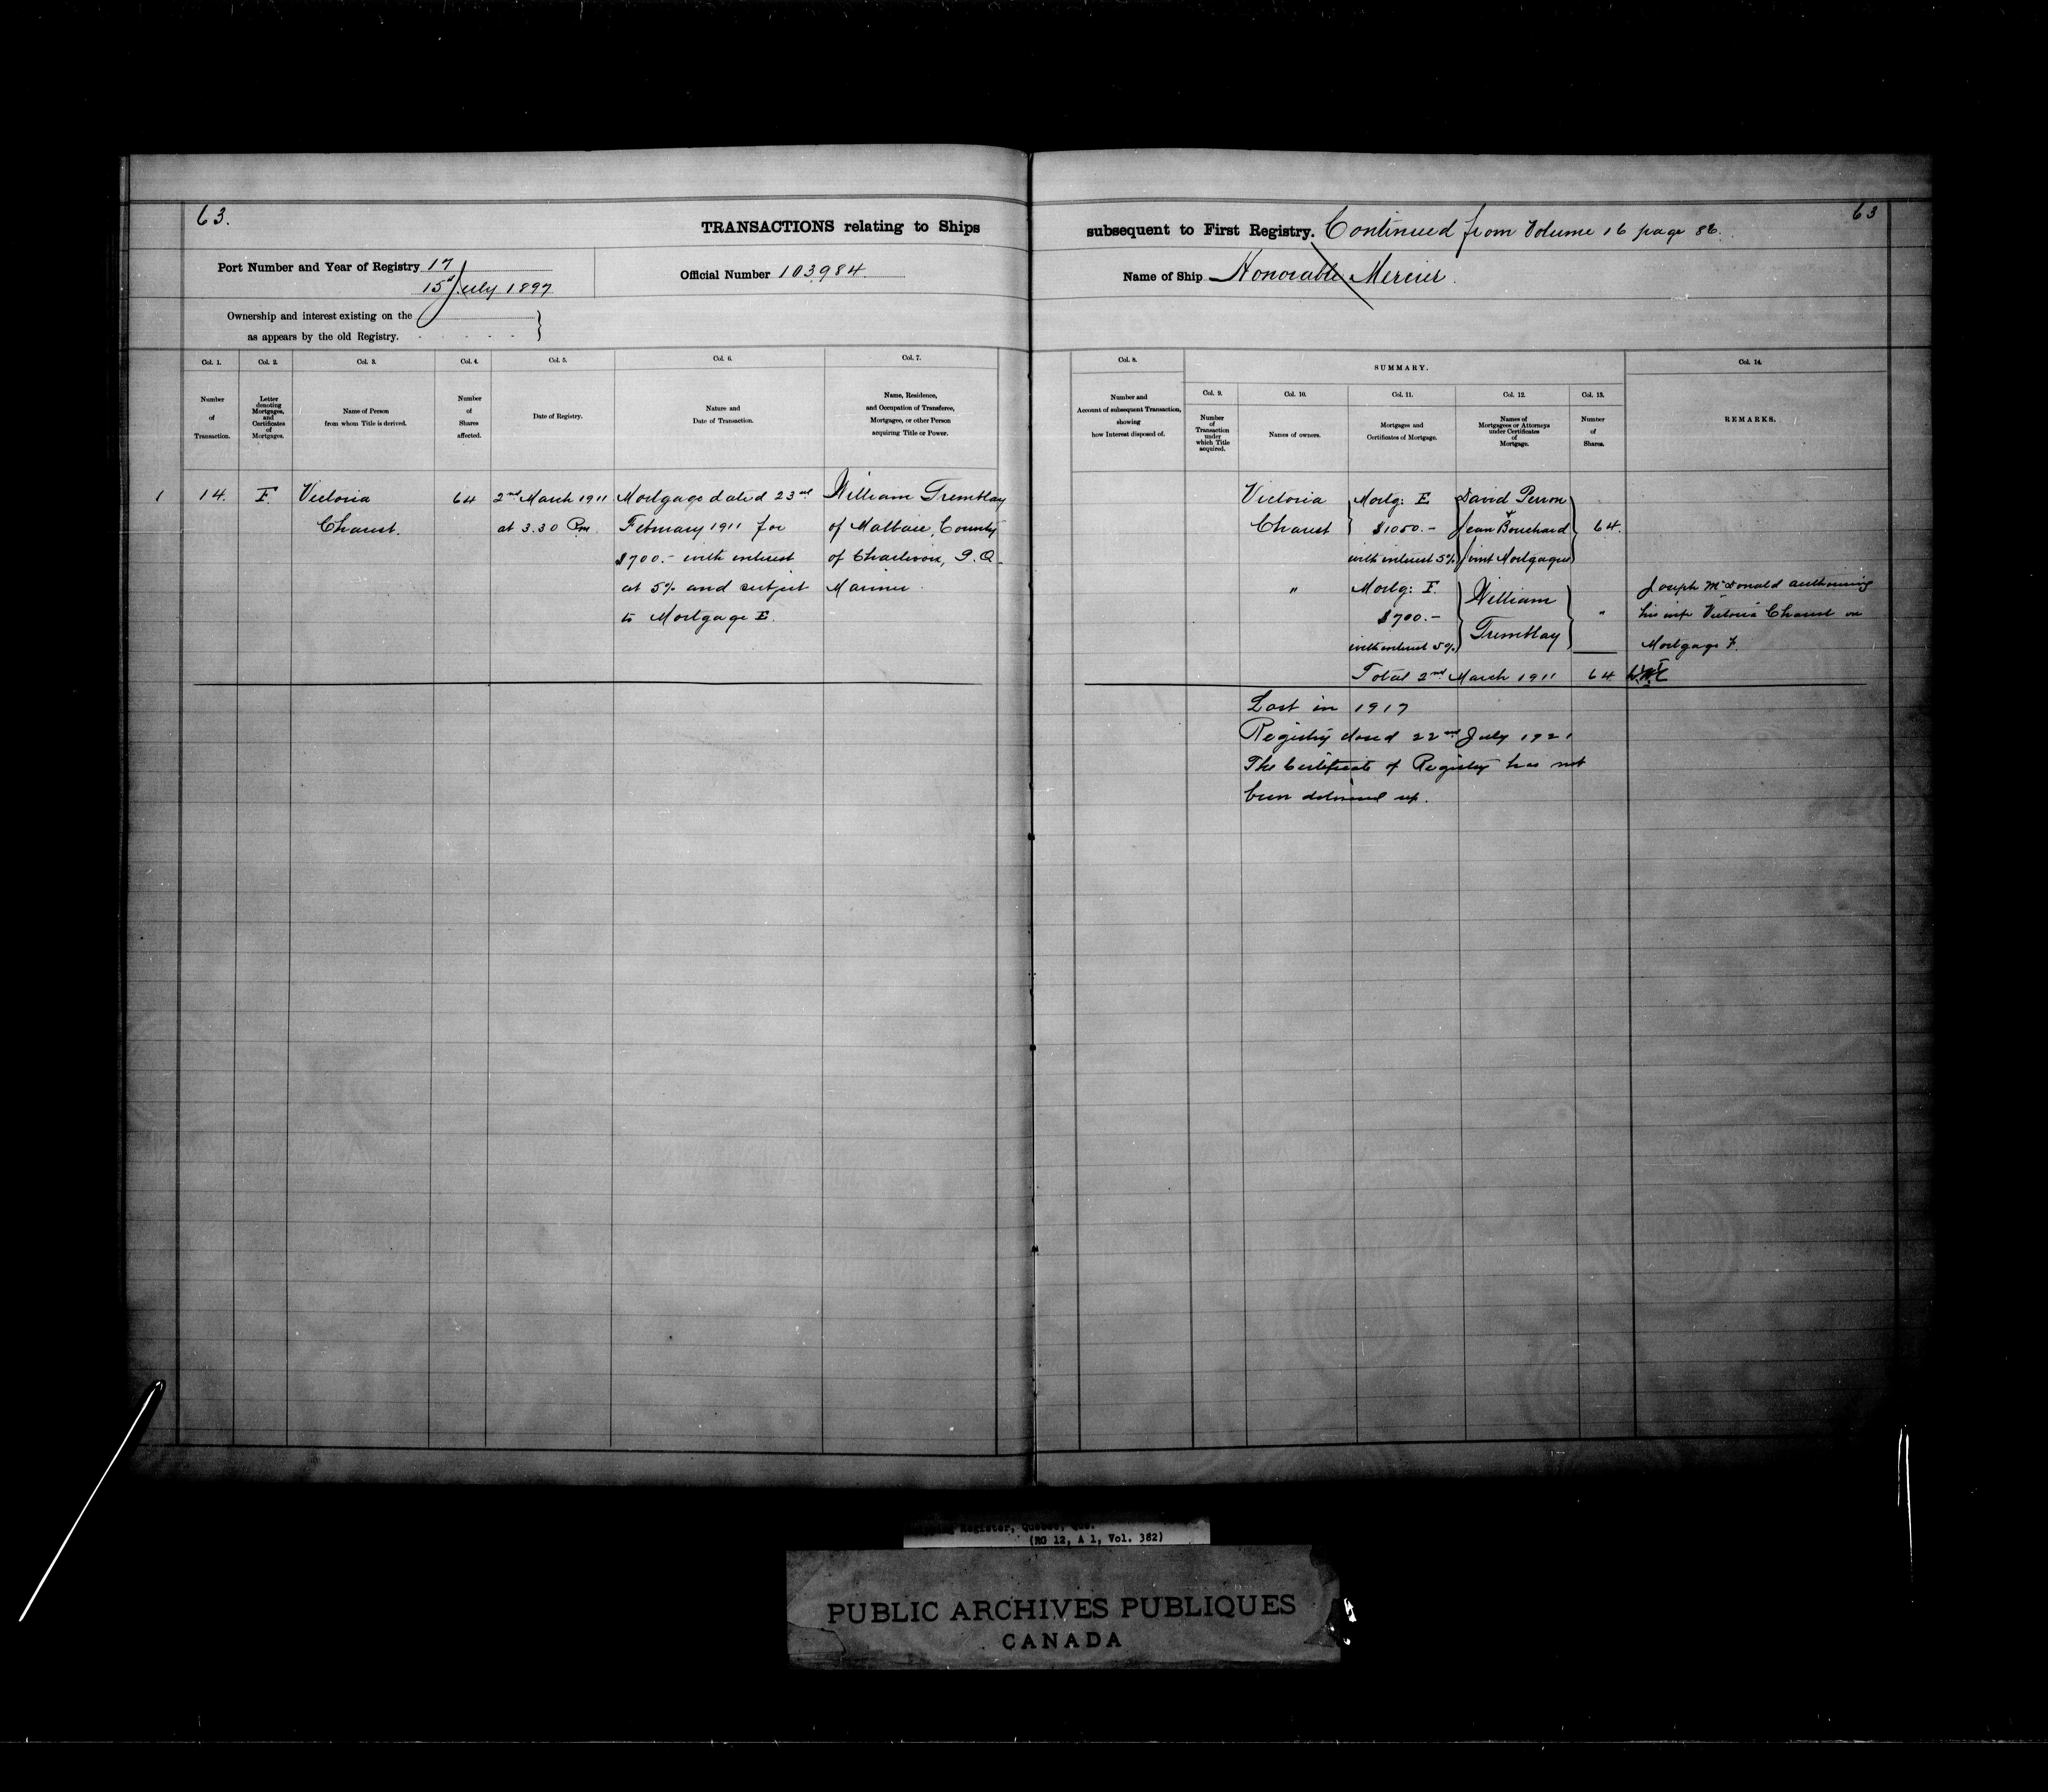 63.
TRANSACTIONS relating to Ships
Port Number and Year of Registry 17
15th July 1897
Official Number 103984
Ownership and interest existing on the
as appears by the old Registry.
Col. 1. Col. 2. Col. 3. Col. 4. Col. 5. Col. 6. Col. 7.
Number of Transaction.
Letter denoting Mortgages, and Certificates of Mortgages.
Name of Person from whom Title is derived.
Number of Shares affected.
Date of Registry.
Nature and Date of Transaction.
Name, Residence, and Occupation of Transferee, Mortgagee, or other Person acquiring Title or Power.
1 14. F. Victoria 64 2nd March 1911 Mortgage dated 23rd William Tremblay
Charest. at 3.30 Pm February 1911 for of Malbaie, County
$700.- with interest of Charlevoix, P.Q.
at 5% and subject Mariner.
to Mortgage E.
63
subsequent to First Registry. Continued from Volume 16 page 86.
Name of Ship Honorable Mercier.
Col. 8. SUMMARY. Col. 14.
Col. 9. Col. 10. Col. 11. Col. 12. Col. 13.
Number and Account of subsequent Transaction, showing how Interest disposed of.
Number of Transaction under which Title acquired.
Names of owners.
Mortgages and Certificates of Mortgage.
Names of Mortgagees or Attorneys under Certificates of Mortgage.
Number of Shares.
REMARKS.
Victoria Mortg: E David Perron
Charest $1050.- & Jean Bouchard 64.
with interest 5% Joint Mortgagees
" Mortg: F. William " Joseph McDonald authorising
$700.- Tremblay his wife Victoria Charest on
with interest 5% Mortgage F.
Total 2nd March 1911 64
Lost in 1917
Registry closed 22nd July 1921
The Certificate of Registry has not
been delivered up.
Register, Quebec, Que.
(RG 12, A 1, Vol. 382)
PUBLIC ARCHIVES PUBLIQUES
CANADA